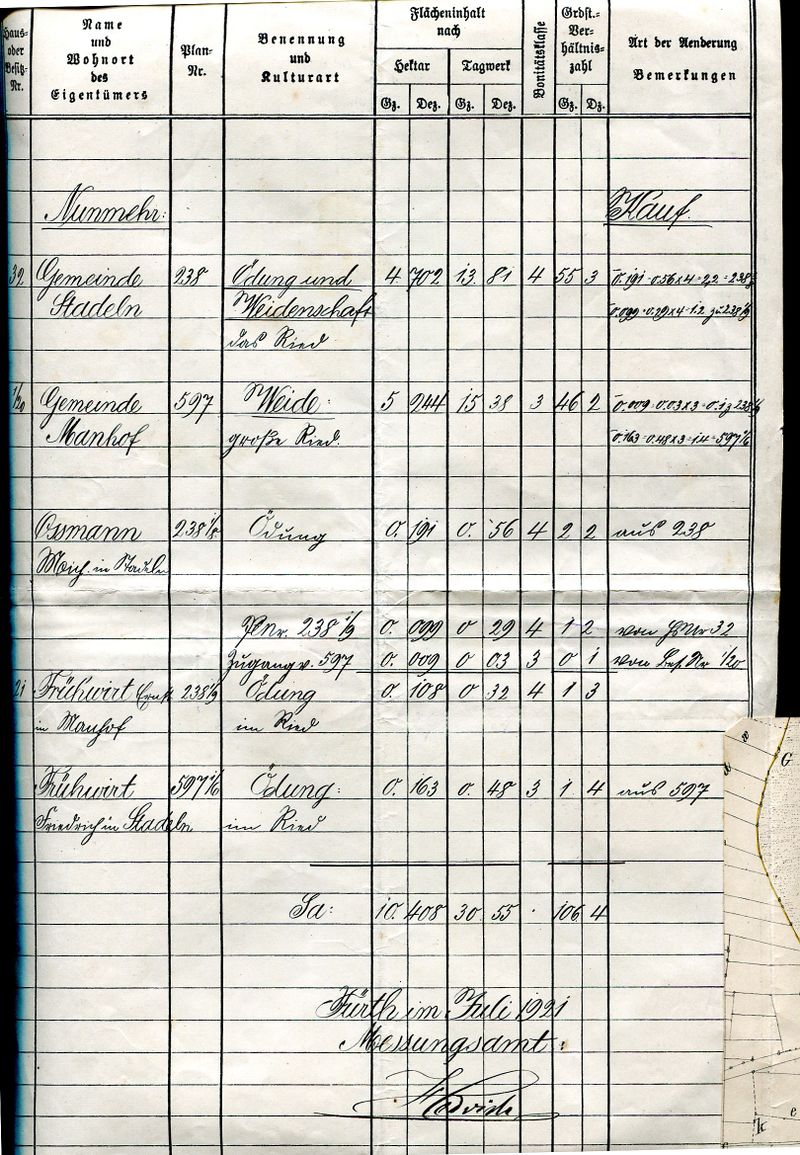 Haus- oder Besitz- Nr.
Name und Wohnort des Eigentümers
Plan- Nr.
Benennung und Kulturart
Flächeninhalt nach
Hektar Tagwerk
Gz. Dez. Gz. Dez.
Bonitätsklasse
Grdst.- Ver- hältnis- zahl
Gz. Dz.
Art der Aenderung
Bemerkungen
Nunmehr: Kauf.
32 Gemeinde 238 Ödung und 4 702 13 81 4 55 3 0.191 = 0.56 x 4 = 2.2 = 238 1/8
Stadeln Weidenschaft 0.099 = 0.29 x 4 = 1.2 zu 238 1/9
das Ried
1/20 Gemeinde 597 Weide: 5 244 15 38 3 46 2 0.009 = 0.03 x 3 = 0.1 z 238 1/9
Manhof große Ried. 0.163 = 0.48 x 3 = 1.4 = 597 1/6
Ossmann 238 1/8 Ödung 0. 191 0. 56 4 2 2 aus 238
Mich. in Stadeln
Plnr. 238 1/9 0. 099 0 29 4 1 2 von HsNr 32
Zugang v. 597 0. 009 0 03 3 0 1 von Bes. Nr 1/20
21 Frühwirt Ernst 238 1/9 Ödung 0. 108 0 32 4 1 3
in Manhof im Ried
Frühwirt 597 1/6 Ödung: 0. 163 0. 48 3 1 4 aus 597
Friedrich in Stadeln im Ried
Sa: 10. 408 30. 55 . 106 4
Fürth im Juli 1921
Messungsamt:
G
k
e